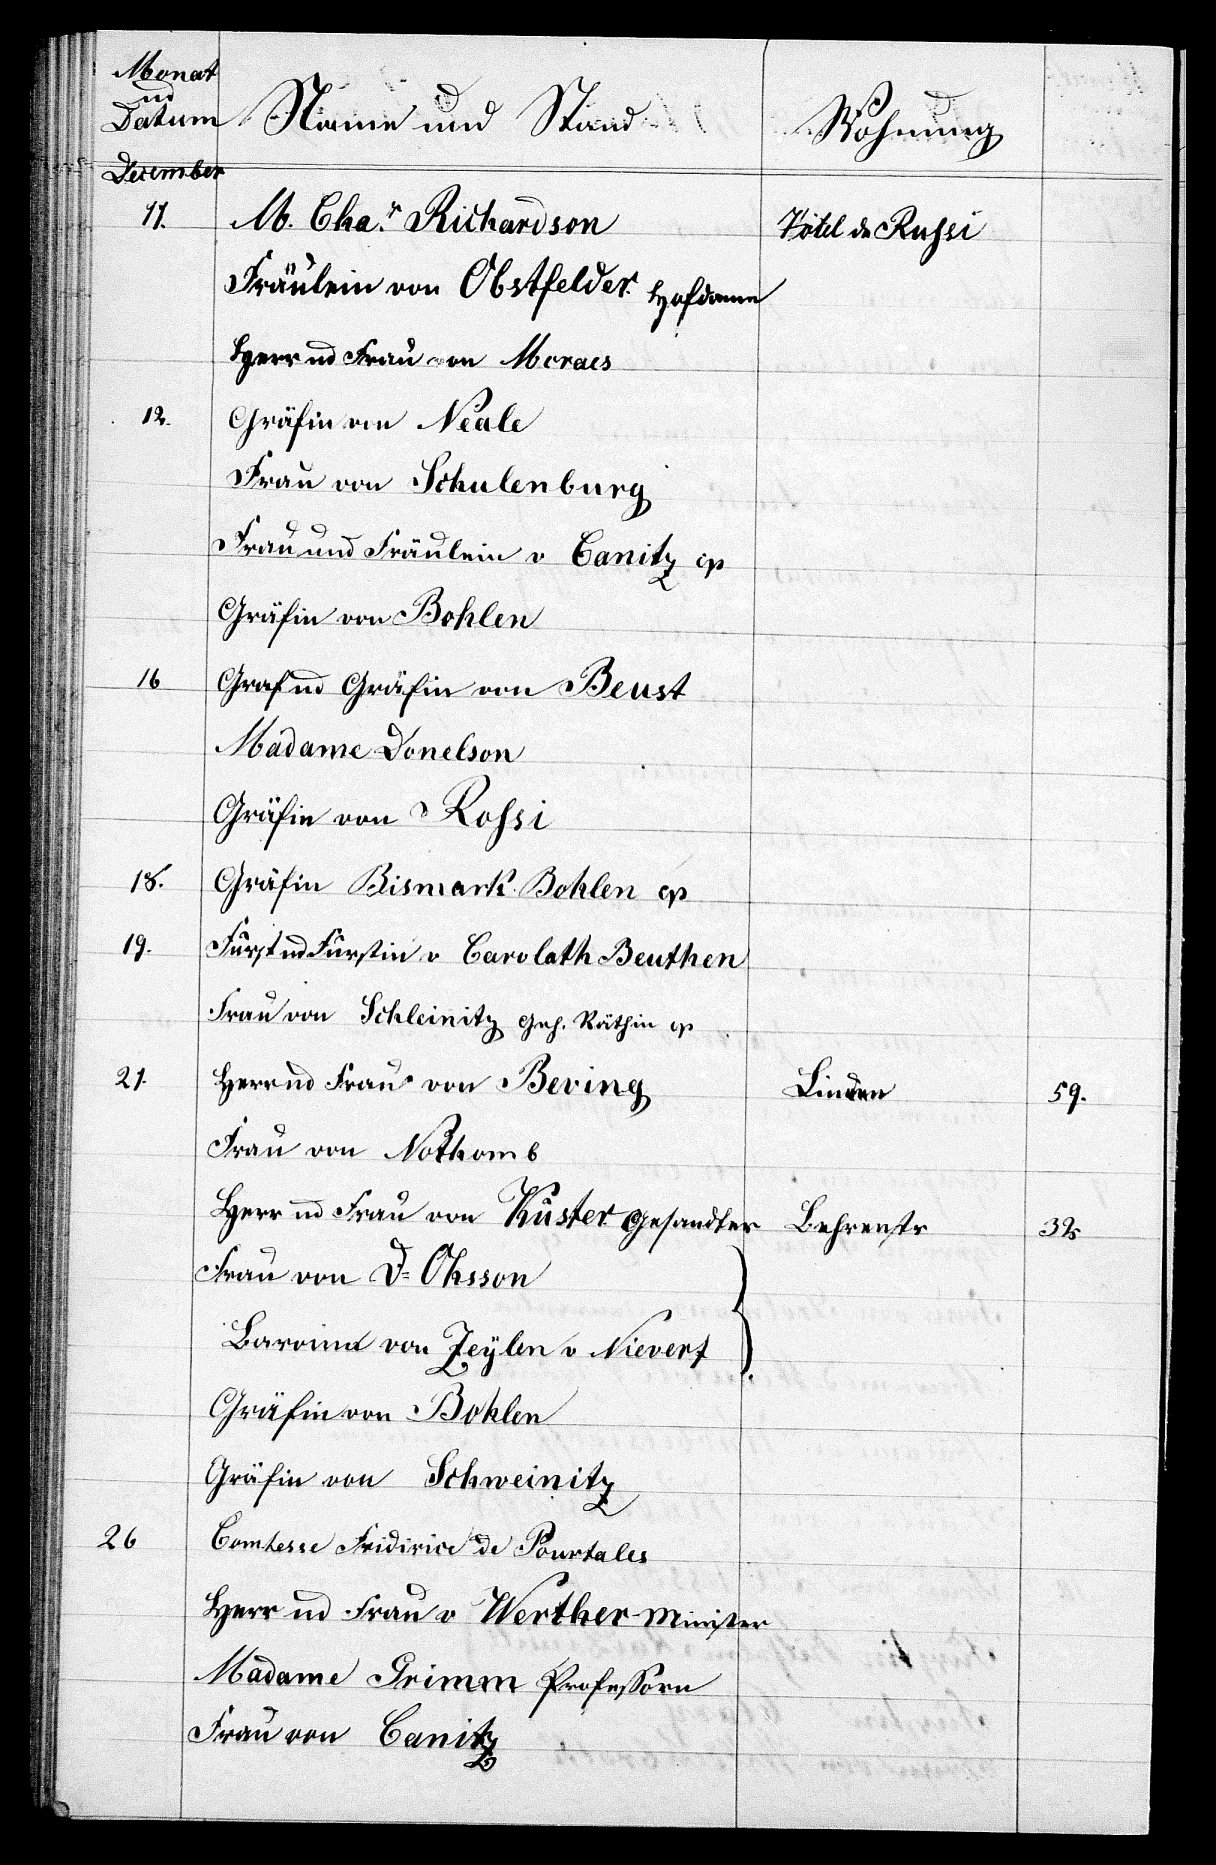 Monat
ud
Datum Name und Stand Wohnung
December
11. M. Cha.s Richardson Hôtel de Russi
Fräulein von Obstfelder. Hofdame
Herr ud Frau von Moraes
12. Gräfin von Néale
Frau von Schulenburg
Frau und Fräulein v Canitz
Gräfin von Bohlen
16 Graf ud Gräfin von Beust
Madame Donelson
Gräfin von Rossi
18. Gräfin Bismark-Bohlen
19. Fürst ud Fürstin v Carolath Beuthen
Frau von Schleinitz Geh. Räthin
21. Herr ud Frau von Bering Linden 59.
Frau von Nothomb
Herr ud Frau von Küster Gesandter Behrenstr 32
Frau von D=Ohsson
Baronin von Zeylen v Nievert
Gräfin von Bohlen
Gräfin von Schweinitz
26 Comtesse Fridirice de Pourtales
Herr ud Frau v Werther Minister
Madame Grimm Professorn
Frau von Canitz